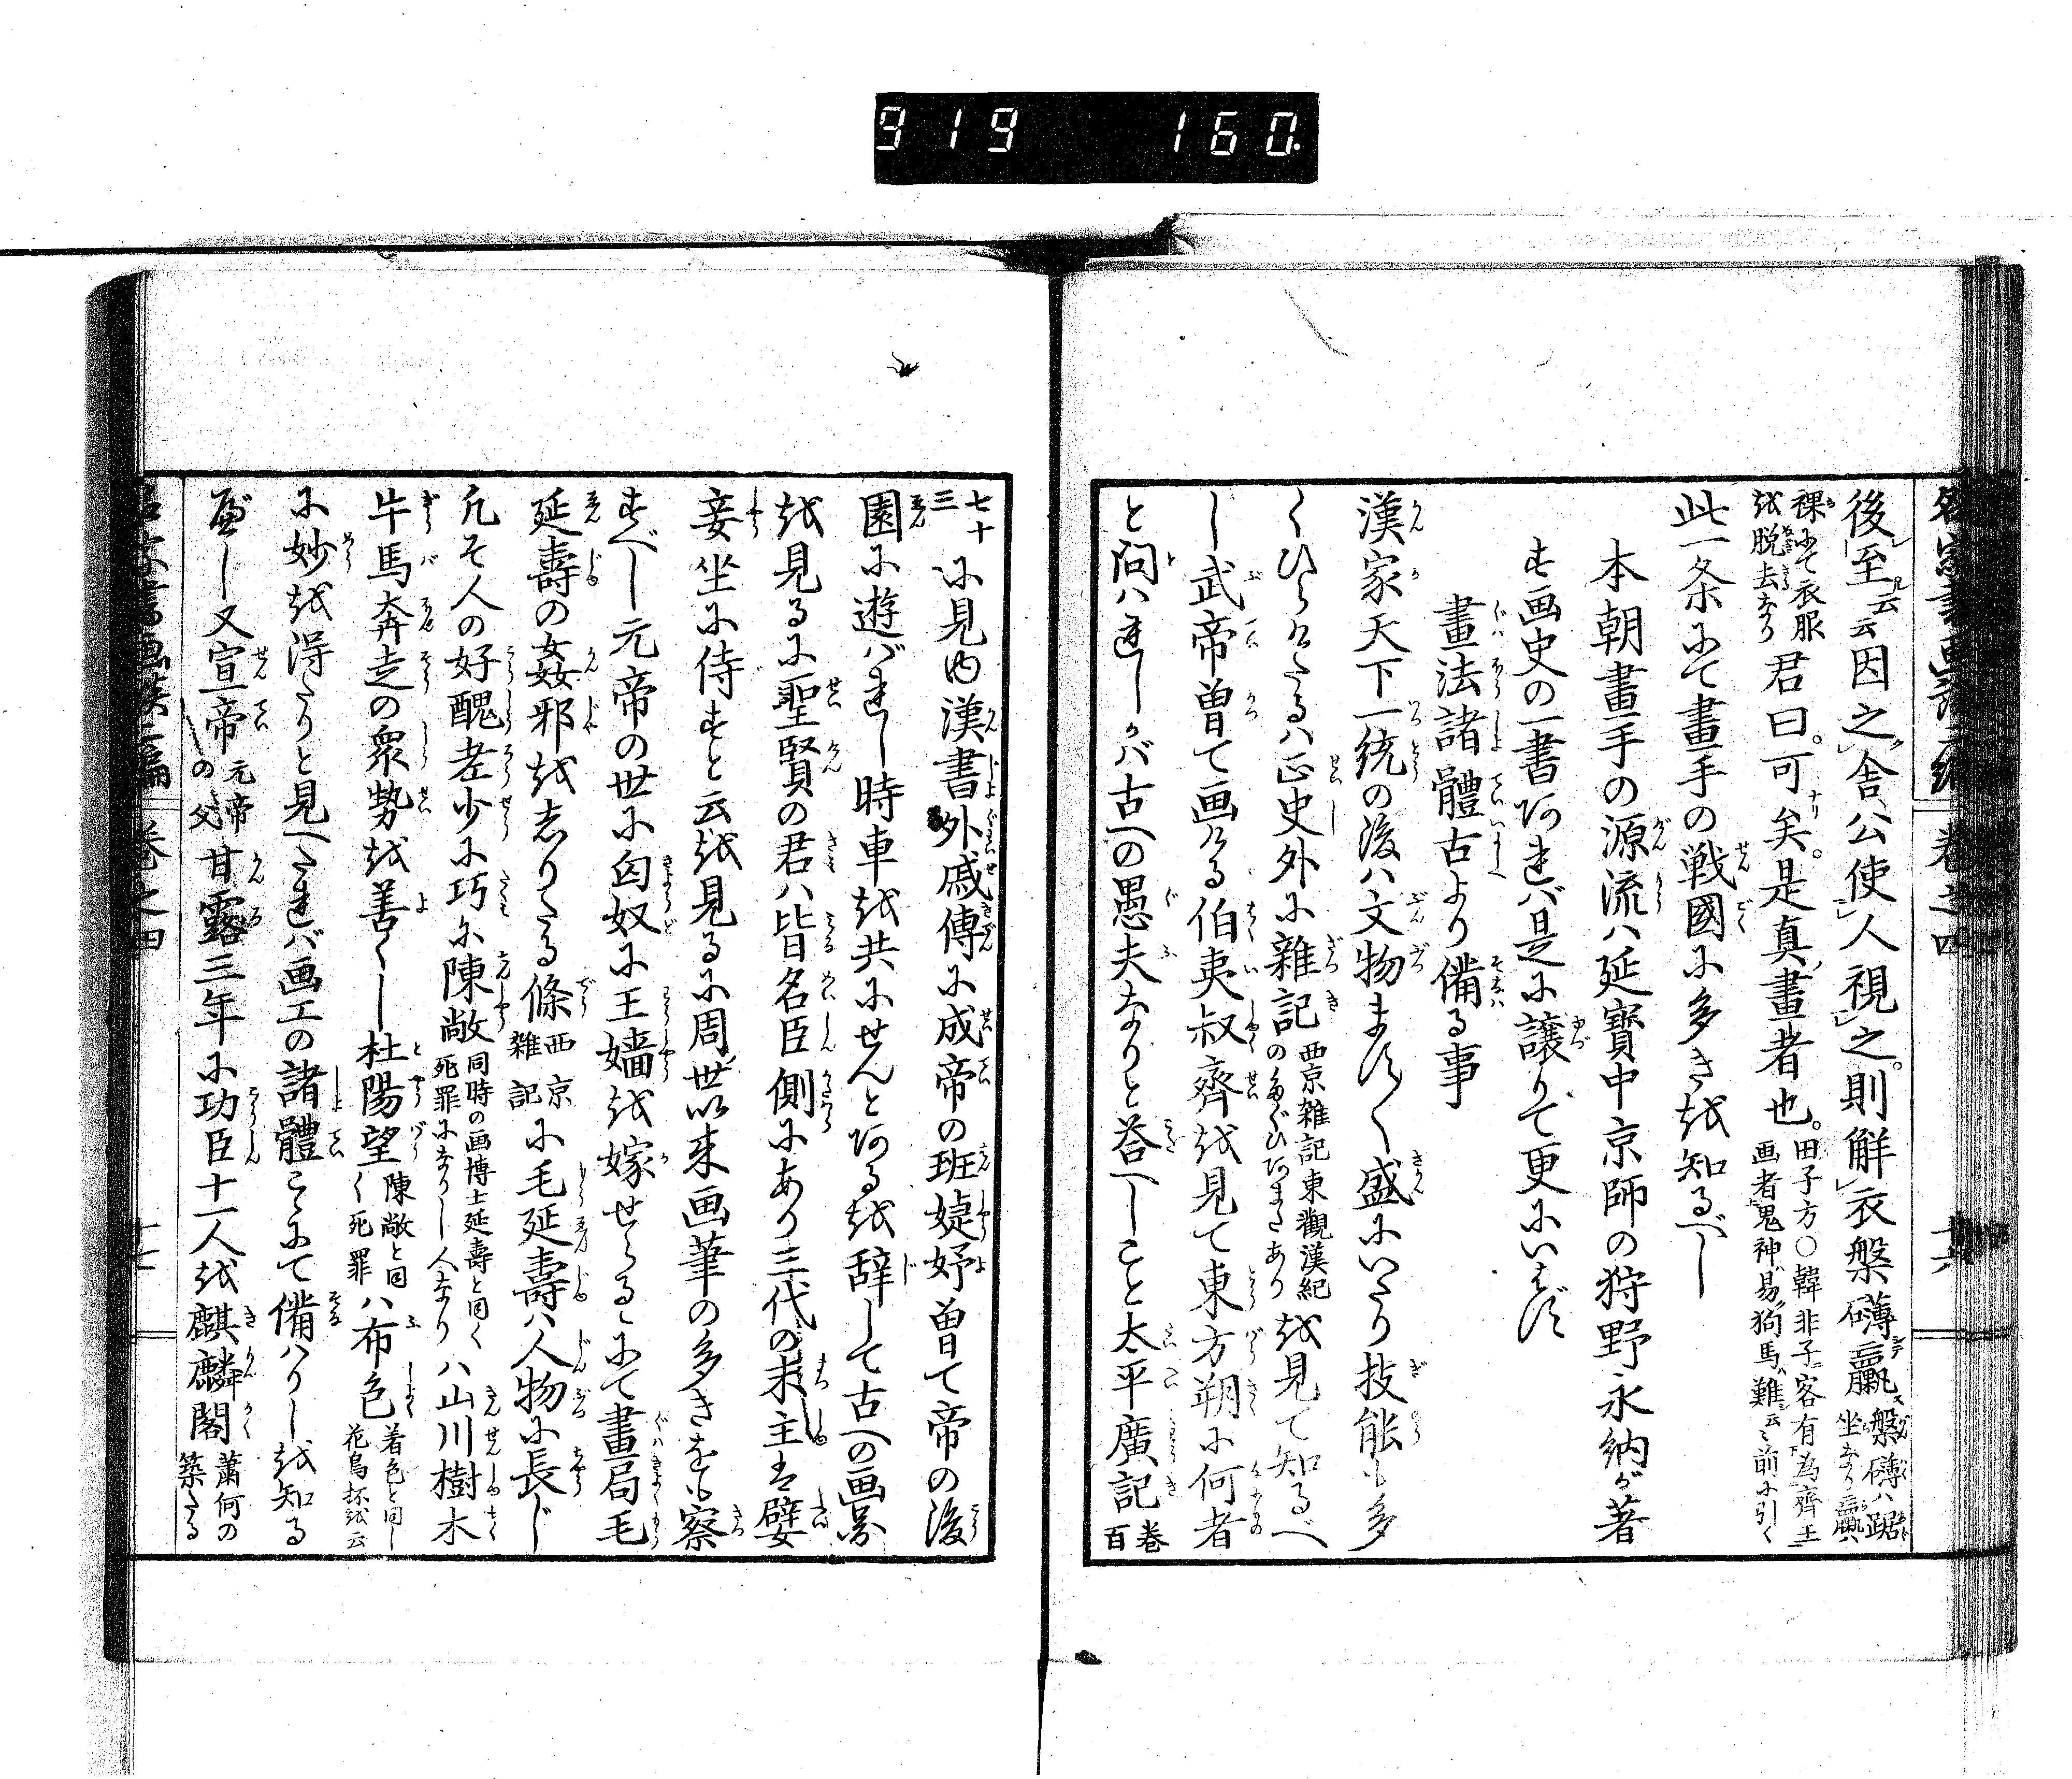 919 160
名家書画談二編 巻之四 十六
後至云云因之舎公使人視之。則解衣槃礴臝槃礴ハ踞坐なり臝ハ
裸にて衣服を脱去なり君曰。可矣。是真畫者也。田子方〇韓非子客有為齊王画者鬼神易狗馬難云々前に引く
此一条にて畫手の戦國に多きを知るべし
本朝畫手の源流ハ延寳中京師の狩野永納が著
す画史の一書あれバ是に譲りて更にいはず
畫法諸體古より備る事
漢家天下一統の後ハ文物ます〳〵盛にいたり技能も多
くひらけたるハ正史外に雜記西京雑記東觀漢紀のたぐひあまたありを見て知るべ
し武帝曽て画ける伯夷叔齊を見て東方朔に何者
と問ハれしかバ古への愚夫なりと荅へしこと太平廣記百巻
七十三に見ゆ漢書外戚傳に成帝の班婕妤曽て帝の後
園に遊バれし時車を共にせんとあるを辞して古への画圖
を見るに聖賢の君ハ皆名臣側にあり三代の末主は嬖
妾坐に侍すと云を見るに周世以来画筆の多きをも察
すべし元帝の世に匈奴に王嬙を嫁せらるゝにて畫局毛
延壽の姦邪をしりたる條西京雑記に毛延壽ハ人物に長じ
凡そ人の好醜老少に巧に陳敞同時の画博士延壽と同く死罪になりし人なりハ山川樹木
牛馬奔走の衆勢を善くし杜陽望陳敞と同く死罪ハ布色着色と同し花鳥抔を云
に妙を得たりと見へたれバ画工の諸體こゝにて備ハりしを知る
べし又宣帝元帝の父甘露三年に功臣十一人を麒麟閣蕭何の築たる
巻之四 十七